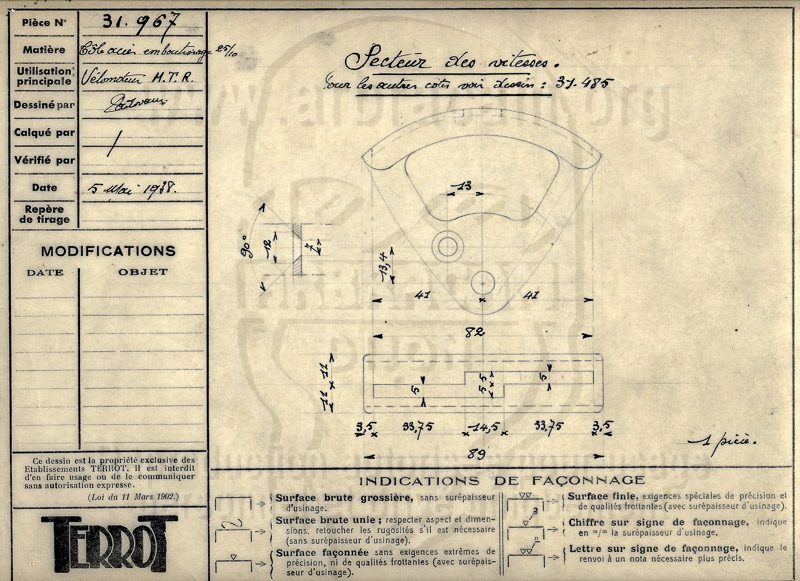 Pièce N° 31.967
Matière Tôle acier emboutissage 25/10
Utilisation principale Vélomoteur H.T.R.
Dessiné par
Calqué par
Vérifié par
Date 5 Mai 1938.
Repère de tirage
MODIFICATIONS
DATE OBJET
Ce dessin est la propriété exclusive des
Etablissements TERROT, il est interdit
d'en faire usage ou de le communiquer
sans autorisation expresse.
(Loi du 11 Mars 1902.)
TERROT
Secteur des vitesses.
Pour les autres cotes voir dessin : 31.485
13
90°
12
7
13,4
41 41
82
11 11
5 5 5 5
3,5 33,75 14,5 33,75 3,5
89
1 pièce.
INDICATIONS DE FAÇONNAGE
Surface brute grossière, sans surépaisseur
d'usinage.
Surface brute unie; respecter aspect et dimen-
sions, retoucher les rugosités s'il est nécessaire
(sans surépaisseur d'usinage).
Surface façonnée sans exigences extrêmes de
précision, ni de qualités frottantes (avec surépais-
seur d'usinage).
Surface finie, exigences spéciales de précision et
de qualités frottantes (avec surépaisseur d'usinage).
3
Chiffre sur signe de faconnage, indique
en m/m la surépaisseur d'usinage.
n
Lettre sur signe de façonnage, indique le
renvoi à un nota nécessaire plus précis.